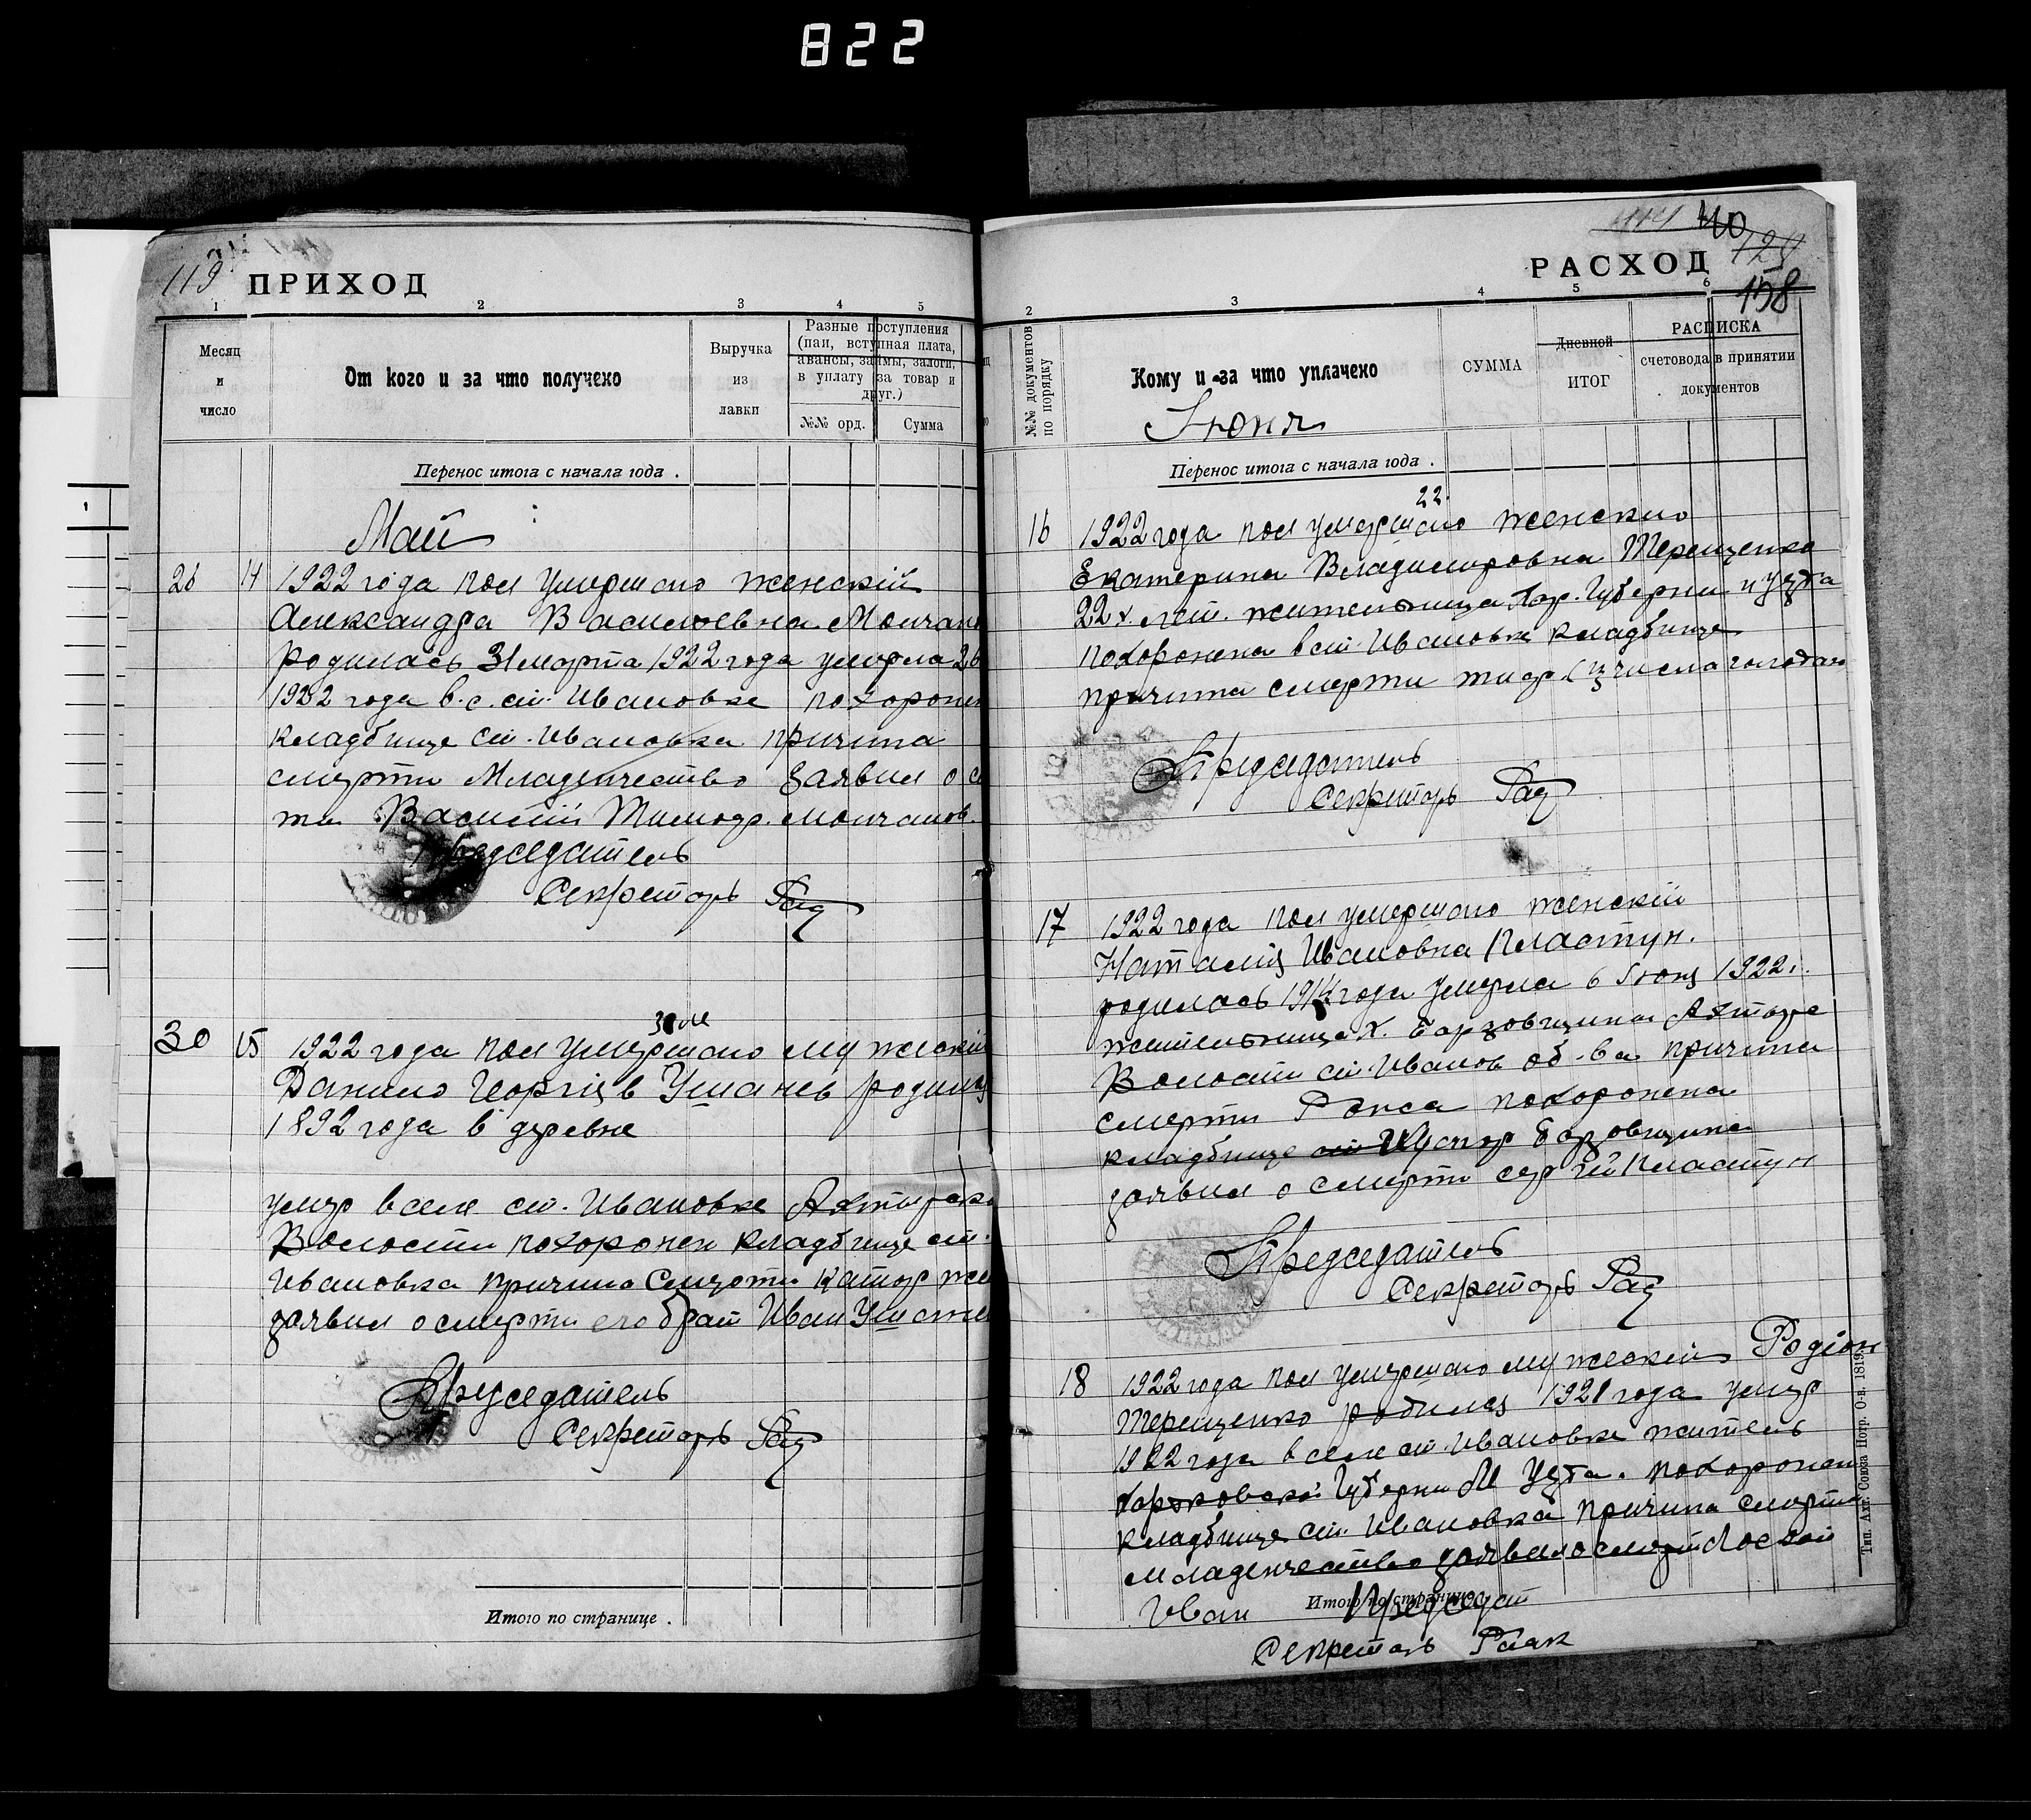 822
119
ПРИХОД
1 2 3 4 5
Месяц и число
От кого и за что получено
Выручка из лавки
Разные поступления (паи, вступная плата, авансы, займы, залоги, в уплату за товар и друг.)
№№ орд. Сумма
Перенос итога с начала года .
Май
26 14 1922 года пол умершаго женскій
Александра Василоевна Молчан
родилась 31 марта 1922 года умерла 26
1922 года в. с. ст. Ивановке похорон
кладбище ст. Ивановка причина
смерти Младенчество заявил о с
ти Василий Тимофр. Молчанов.
Председатель
Секретарь
30 15 1922 года пол умершаго мужеский
Данило Георгіев Ушанев родился
1892 года в деревне
умер в селе ст. Ивановке Ахтырско
Волости похоронен кладбище ст.
Ивановка причина смерти
заявил о смерти его брат Иван
Председатель
Секретарь
Итого по странице .
РАСХОД
40
124
158
2 3 4 5 6
№№ документов по порядку
Кому и за что уплачено
СУММА
Дневной ИТОГ
РАСПИСКА
счетовода в принятии документов
Июня
Перенос итога с начала года .
22.
16 1922 года пол умершаго женскио
Екатерина Владимировна Терещенко
22х. лет. жительница Хар. Губерни и уезта
похоронена в ст. Ивановке кладбище
причина смерти тиф. (из числа голодаю
Председатель
Секретарь
17 1922 года пол умершаго женскій
Наталия Ивановна Пластун.
родилась 1914 года умерла 6 Июня 1922 г.
жительница х. Барзовщина Ахтыре
Волости ст. Иванов об-ва причина
смерти похоронена
кладбище Хутор Борзовщина
заявил о смерти Пластун
Председатель
Секретарь
18 1922 года пол умершаго мужеский Родіон
Терещенко родился 1921 года умер
1922 года в селе ст. Ивановке житель
Харковской Губерни уезта. похоронен
кладбище ст. Ивановка причина смерти
младенчество заявил о смерти
Иван Председат
Итого по странице
Секретарь
Тип. Ахт. Союза Потр. О-в. 1819.